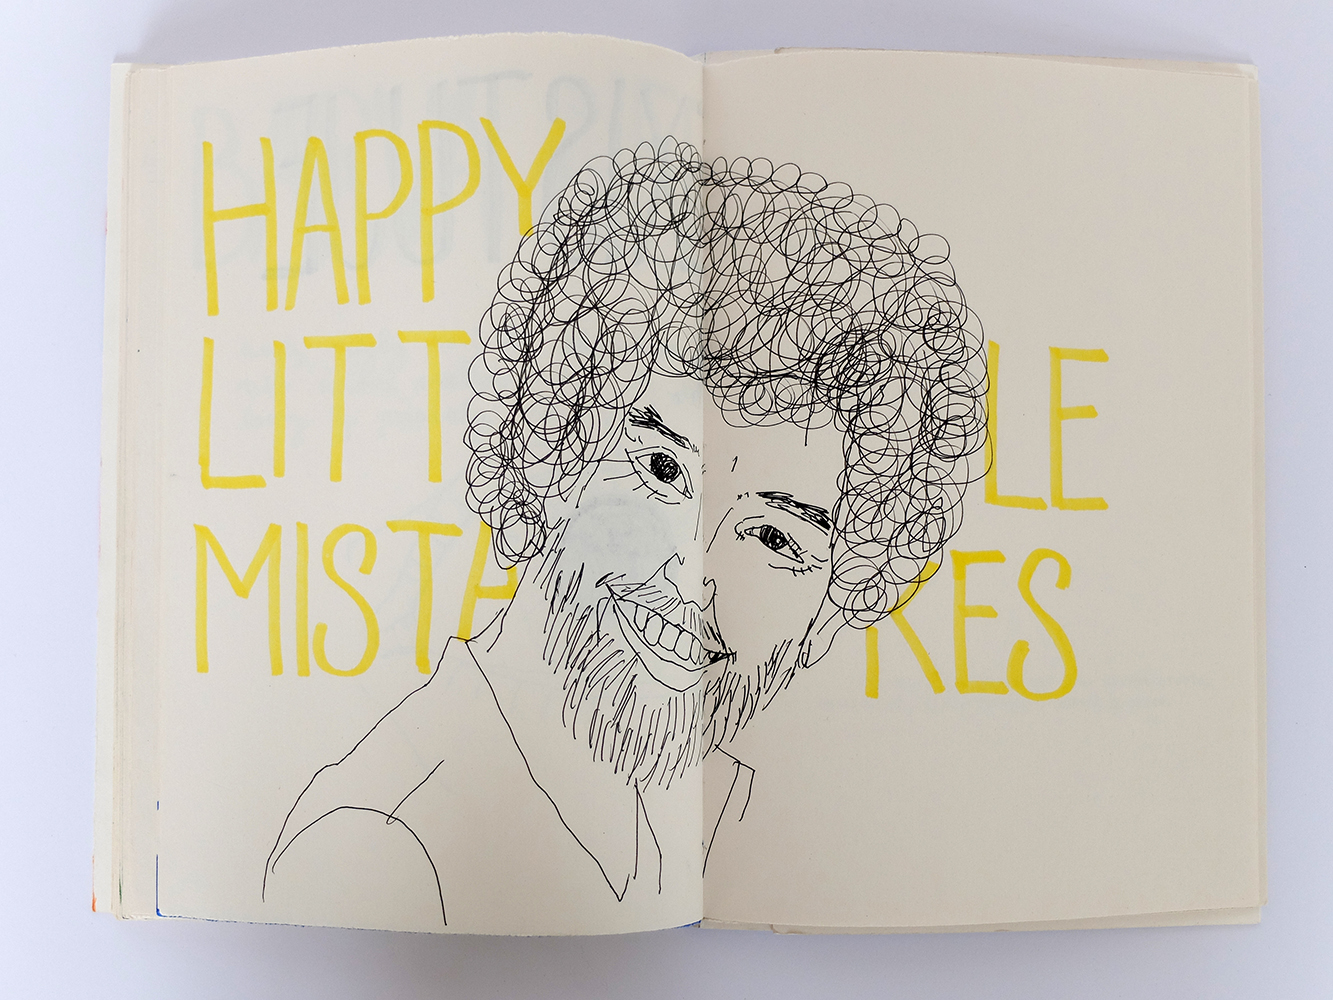 HAPPY
LITTLE
MISTAKES